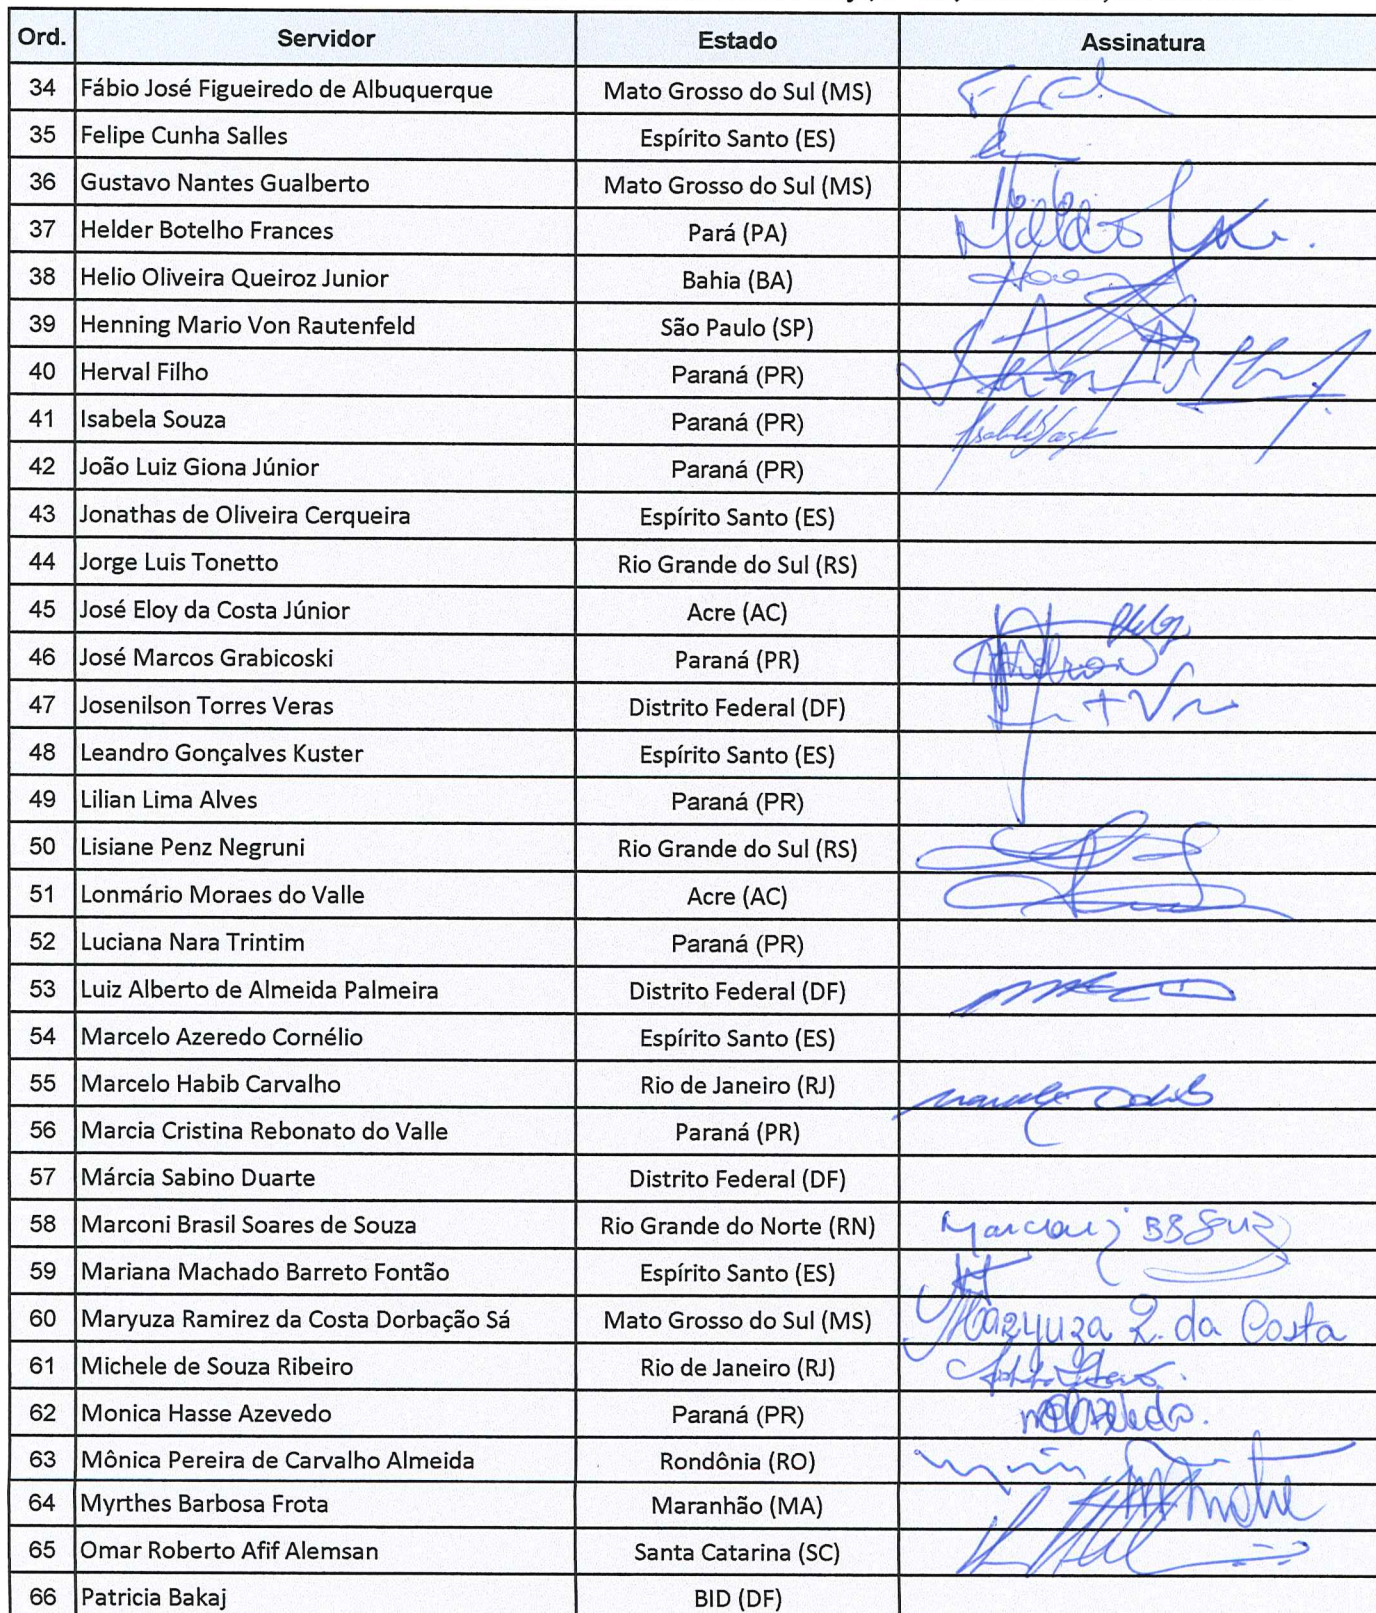 Ord. Servidor Estado Assinatura
34 Fábio José Figueiredo de Albuquerque Mato Grosso do Sul (MS)
35 Felipe Cunha Salles Espírito Santo (ES)
36 Gustavo Nantes Gualberto Mato Grosso do Sul (MS)
37 Helder Botelho Frances Pará (PA)
38 Helio Oliveira Queiroz Junior Bahia (BA)
39 Henning Mario Von Rautenfeld São Paulo (SP)
40 Herval Filho Paraná (PR)
41 Isabela Souza Paraná (PR)
42 João Luiz Giona Júnior Paraná (PR)
43 Jonathas de Oliveira Cerqueira Espírito Santo (ES)
44 Jorge Luis Tonetto Rio Grande do Sul (RS)
45 José Eloy da Costa Júnior Acre (AC)
46 José Marcos Grabicoski Paraná (PR)
47 Josenilson Torres Veras Distrito Federal (DF)
48 Leandro Gonçalves Kuster Espírito Santo (ES)
49 Lilian Lima Alves Paraná (PR)
50 Lisiane Penz Negruni Rio Grande do Sul (RS)
51 Lonmário Moraes do Valle Acre (AC)
52 Luciana Nara Trintim Paraná (PR)
53 Luiz Alberto de Almeida Palmeira Distrito Federal (DF)
54 Marcelo Azeredo Cornélio Espírito Santo (ES)
55 Marcelo Habib Carvalho Rio de Janeiro (RJ)
56 Marcia Cristina Rebonato do Valle Paraná (PR)
57 Márcia Sabino Duarte Distrito Federal (DF)
58 Marconi Brasil Soares de Souza Rio Grande do Norte (RN)
59 Mariana Machado Barreto Fontão Espírito Santo (ES)
60 Maryuza Ramirez da Costa Dorbação Sá Mato Grosso do Sul (MS) Maryuza R. da Costa
61 Michele de Souza Ribeiro Rio de Janeiro (RJ)
62 Monica Hasse Azevedo Paraná (PR)
63 Mônica Pereira de Carvalho Almeida Rondônia (RO)
64 Myrthes Barbosa Frota Maranhão (MA)
65 Omar Roberto Afif Alemsan Santa Catarina (SC)
66 Patricia Bakaj BID (DF)